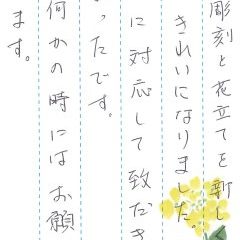 彫刻と花立てを新し
きれいになりました。
に対応して致だき
ったです。
何かの時にはお願
ます。